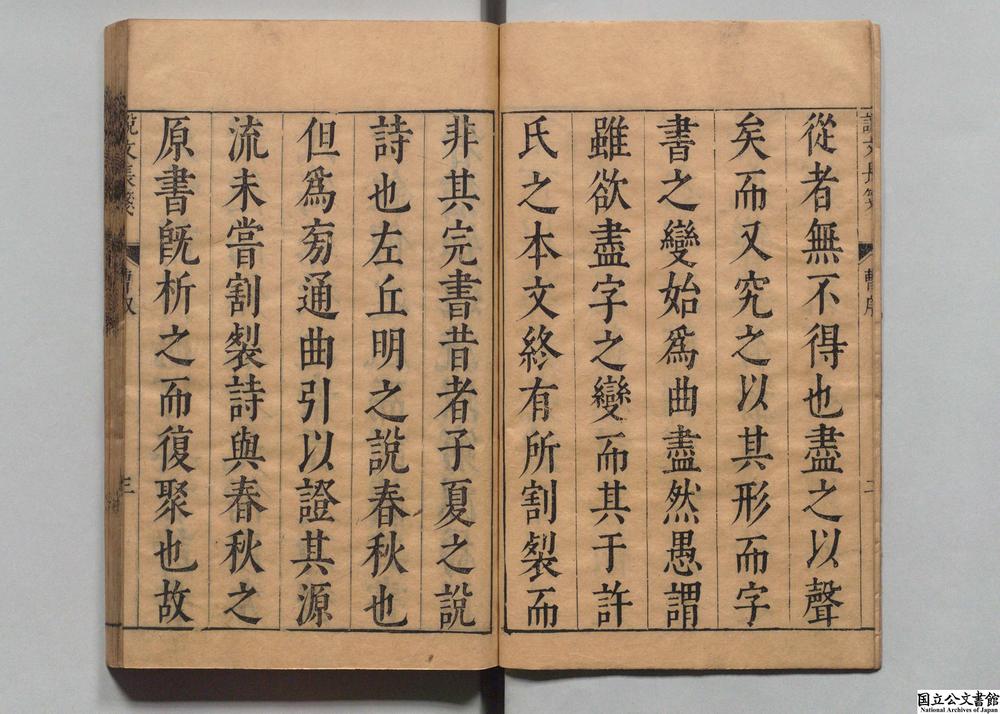 從者無不得也盡之以聲
矣而又究之以其形而字
書之變始爲曲盡然愚謂
雖欲盡字之變而其于許
氏之本文終有所割製而
非其完書昔者子夏之說
詩也左丘明之說春秋也
但爲旁通曲引以證其源
流未嘗割製詩與春秋之
原書旣析之而復聚也故
說文長箋
曹序
二
說文長箋
曹序
三
国立公文書館
National Archives of Japan